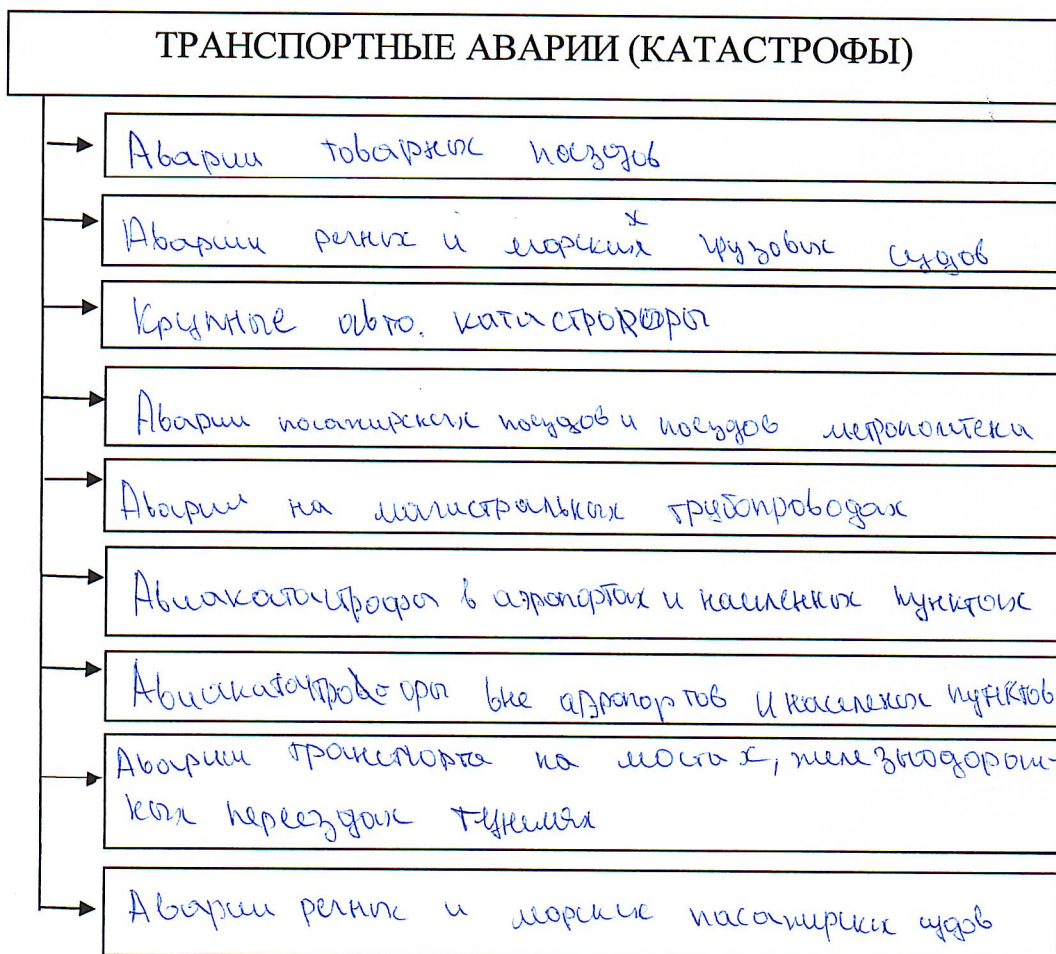 ТРАНСПОРТНЫЕ АВАРИИ (КАТАСТРОФЫ)
Аварии товарных поездов
Аварии речных и морских грузовых судов
Крупные авто. катастрофы
Аварии посажирских поездов и поездов метрополитена
Аварии на магистральных трубопроводах
Авиакатастрофы в аэропортах и населенных пунктах
Авиакатастрофы вне аэропортов и населеных пунктов
Аварии транспорта на мостах, железнодорож-
ных переездах тунелях
Аварии речных и морских пасажирских судов